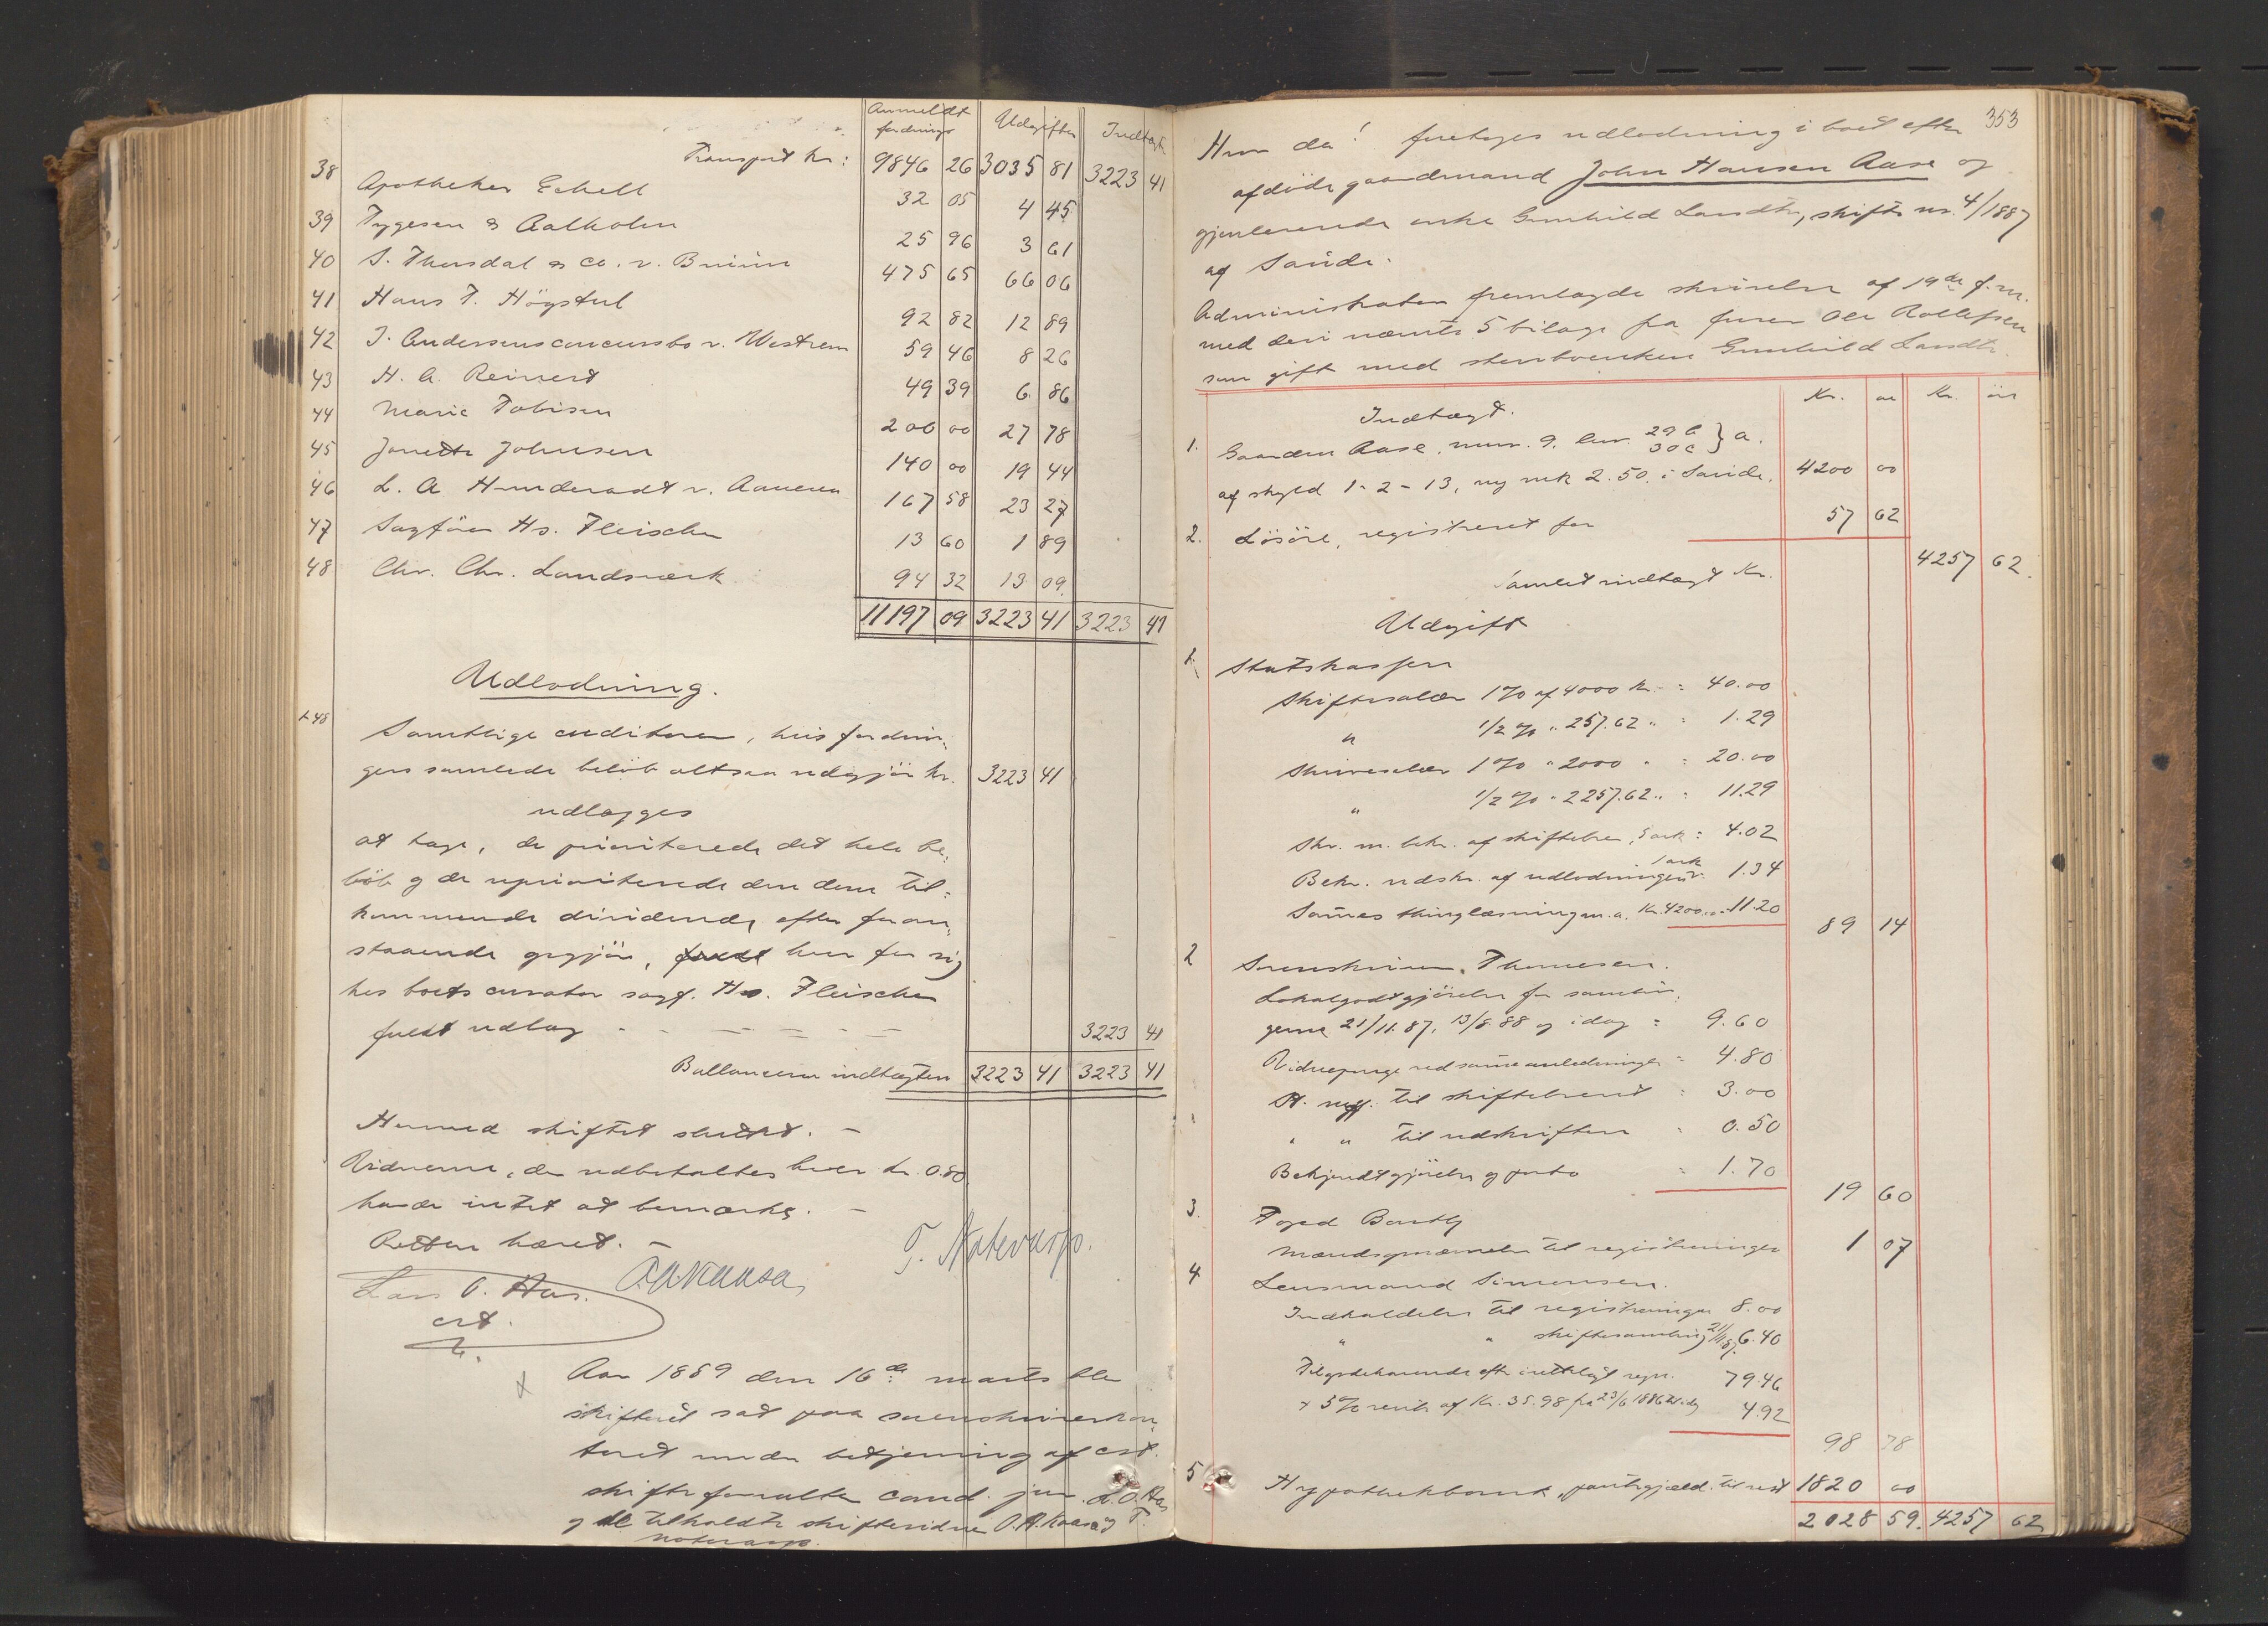 Anmeldt
fordringer
Udgifter
Indtægt
Transport kr: 9846 26 3035 81 3223 41
38 Apotheker Eckell 32 05 4 45
39 Tygesen & Aalholm 25 96 3 61
40 S. Thorsdal & co. v. Bruun 475 65 66 06
41 Hans T. Högstul 92 82 12 89
42 J. Anderssens concursbo v. Westrem 59 46 8 26
43 H. A. Reinert 49 39 6 86
44 Marie Tobisen 200 00 27 78
45 Janette Johnsen 140 00 19 44
46 L. A. v. Aanesen 167 58 23 27
47 Sagfören Hs. Fleischer 13 60 1 89
48 Chr. Chr. Landsværk 94 32 13 09
11197 09 3223 41 3223 41
Udlodning.
1-48 Samtlige creditorer, hvis fordrin-
gers samlede belöb altsaa udgjör kr. 3223 41
udlægges
at tage, de prioriterede det hele be-
löb og de uprioriterede den dem til-
kommende dividende, efter foran-
staaende opgjör, hver for sig
hos boets curator sagf. Hs. Fleischer
fuldt udlag - - - - - - 3223 41
Ballancerer indtægten 3223 41 3223 41
Hermed skiftet sluttet. -
Vidnerne, der udbetaltes hver kr. 0.80
havde intet at bemærke. -
Retten hævet. -
Lars O. Aas.
cst.
O A Kaasa
T. Natevasp.
Aar 1889 den 16de marts blev
skifteret sat paa sorenskriverkon-
toret under betjening af cst.
skifteforvalter cand. jur. L. O. Aas
og de tilkaldte skiftevidner O. A. Kaasa og T.
Natevasp.
353
Hvor da! foretoges udlodning i boet efter
afdöde gaardmand John Hansen Aase og
gjenlevende enke Gunhild Larsdtr, skifte nr. 4/1887
af Saude.
Administrator fremlagde skrivelse af 19de f.m.
med deri nævnte 5 bilage fra Ole Rollefsen
som gift med sterboenken Gunhild Larsdtr.
Kr. öre Kr. öre
Indtægt.
1. Gaarden Aase, matr. 9, lnr. 29 b } a.
30 c
af skyld 1-2-13, ny mrk 2.50 i Saude. 4200 00
2. Lösöre, registreret for 57 62
Samlet indtægt Kr. 4257 62.
Udgift
1. Statskassen
Skiftesalær 1 % af 4000 kr. = 40.00
" 1/2 % " 257.62 " = 1.29
Skriversalær 1 % " 2000 " = 20.00
" 1/2 % " 2257.62 " = 11.29
Skr. m. bekr. af skiftebrev, 3 ark = 4.02
Bekr. udskr. af udlodningen 1 ark = 1.34
Sammes thinglæsning m. a. Kr. 4200.00 = 11.20
89 14
2 Sorenskriver Thomesen.
Lokalgodtgjörelse for samlin-
gerne 21/11.87, 13/8.88 og idag = 9.60
Vidnepenge ved samme anledninger = 4.80
St. til skiftebrevet = 3.00
" " til udskriften = 0.50
Bekjendtgjörelse og porto = 1.70
19 60
3. Foged Barth
Mændsopnævnelse til registreringen 1 07
4 Lensmand Simonsen.
Indkaldelse til registreringen 8.00
" " skiftesamling 21/11.87. 6.40
Tilgodehavende efter indlagt regn. 79.46
+ 5 % rente af Kr. 35.98 fra 23/6 1886 til idag 4.92
98 78
5 Hypothekbank, pantegjæld til rest 1820 00
2028 59. 4257 62